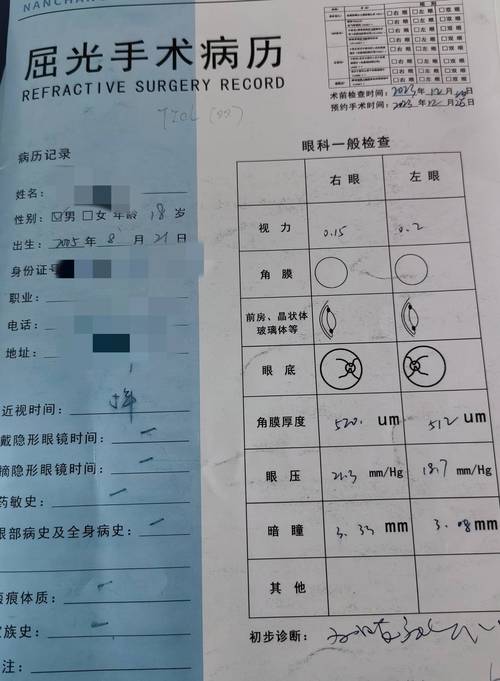 NANCHAN
屈光手术病历
REFRACTIVE SURGERY RECORD
□右眼 □左眼 □双眼
□右眼 □左眼 □双眼
□右眼 □左眼 □双眼
□右眼 □左眼 □双眼
□右眼 □左眼 □双眼
□右眼 □左眼 □双眼
术前检查时间: 2023年12月 日
预约手术时间: 2023年12月26日
病历记录
姓名:
性别: ☑男 □女 年龄 18岁
出生: 2005年8月21日
身份证号
职业:
电话:
地址:
近视时间: 5年
戴隐形眼镜时间: 一
摘隐形眼镜时间: 一
药敏史: 一
眼部病史及全身病史: 一
瘢痕体质: 一
家族史: 一
注:
眼科一般检查
右眼 左眼
视力 0.15 0.2
角膜
前房、晶状体
玻璃体等
眼底
角膜厚度 520. um 512 um
眼压 21.3 mm/Hg 18.7 mm/Hg
暗瞳 3.33 mm 3.08 mm
其他
初步诊断: